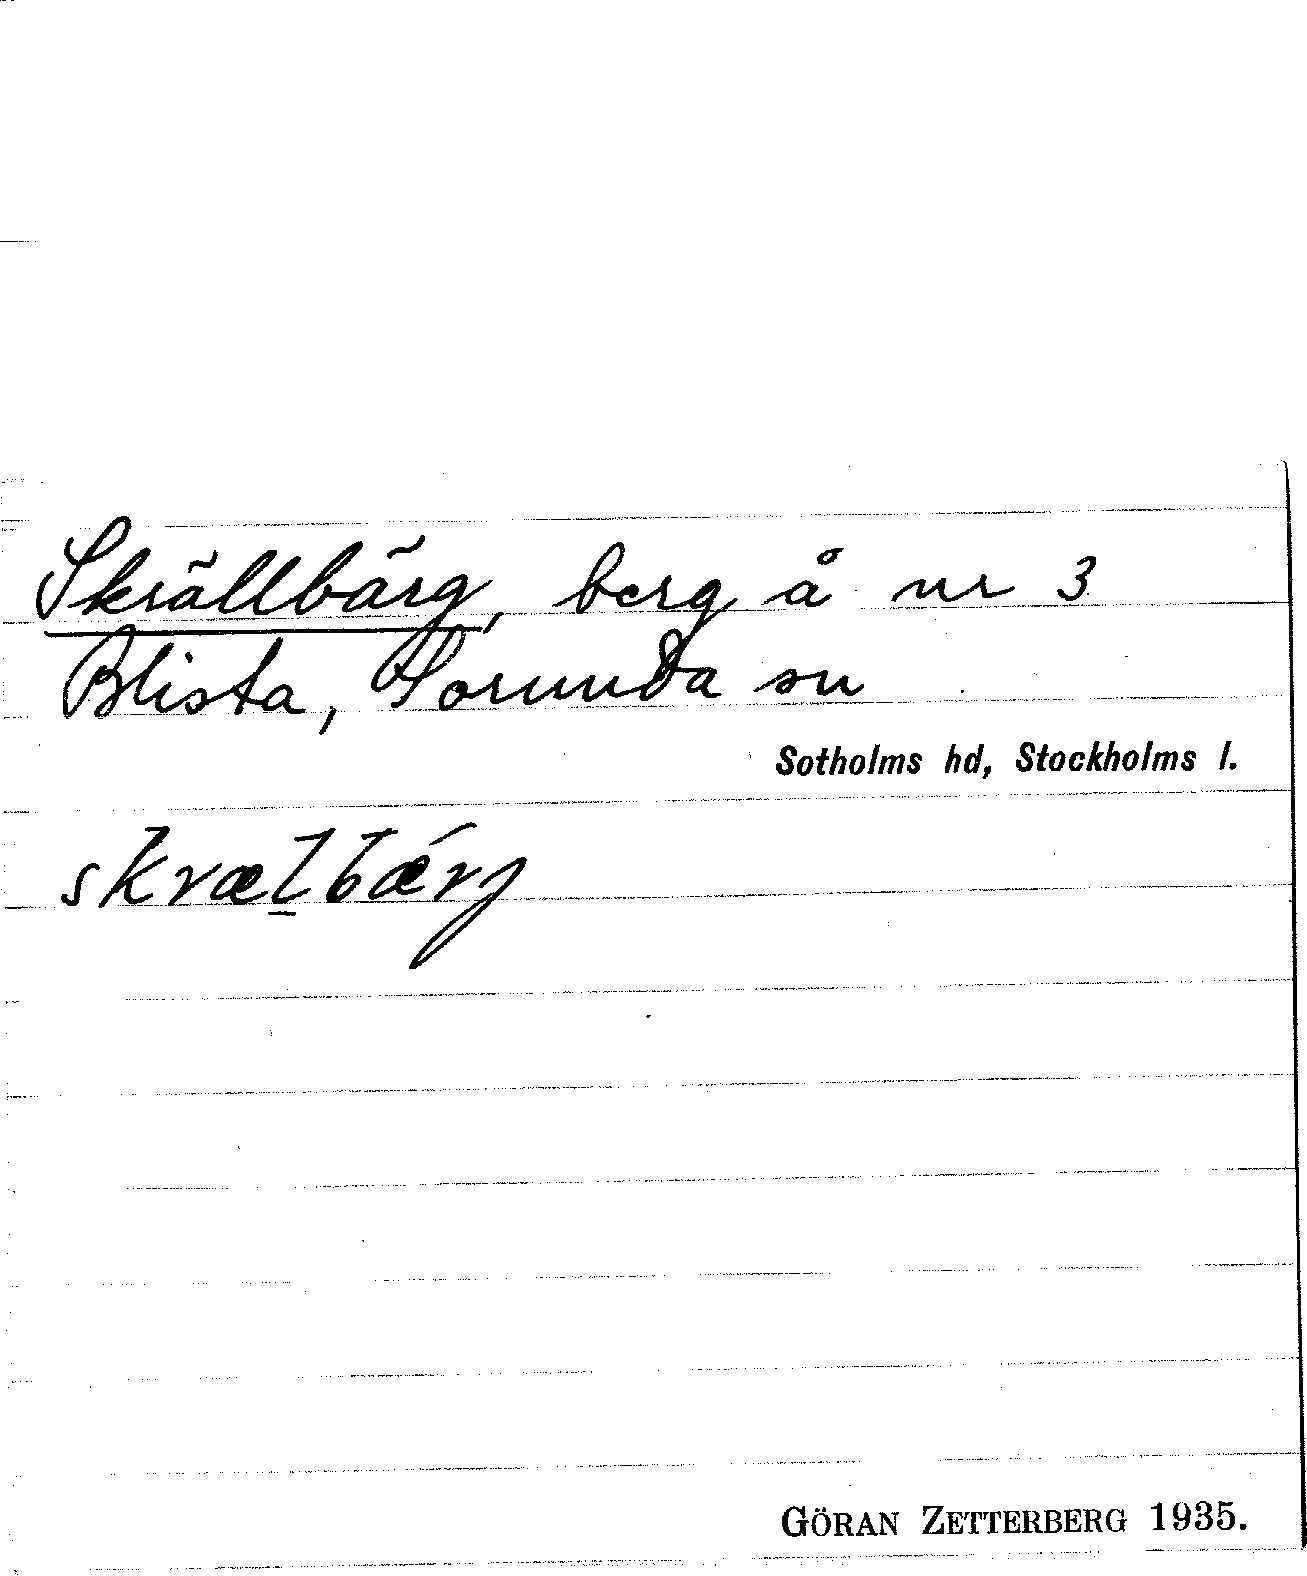 Skrällbärg, berg å nr 3
Blista, Sorunda sn
Sotholms hd, Stockholms l.
skræl̲bǽrj
GÖRAN ZETTERBERG 1935.